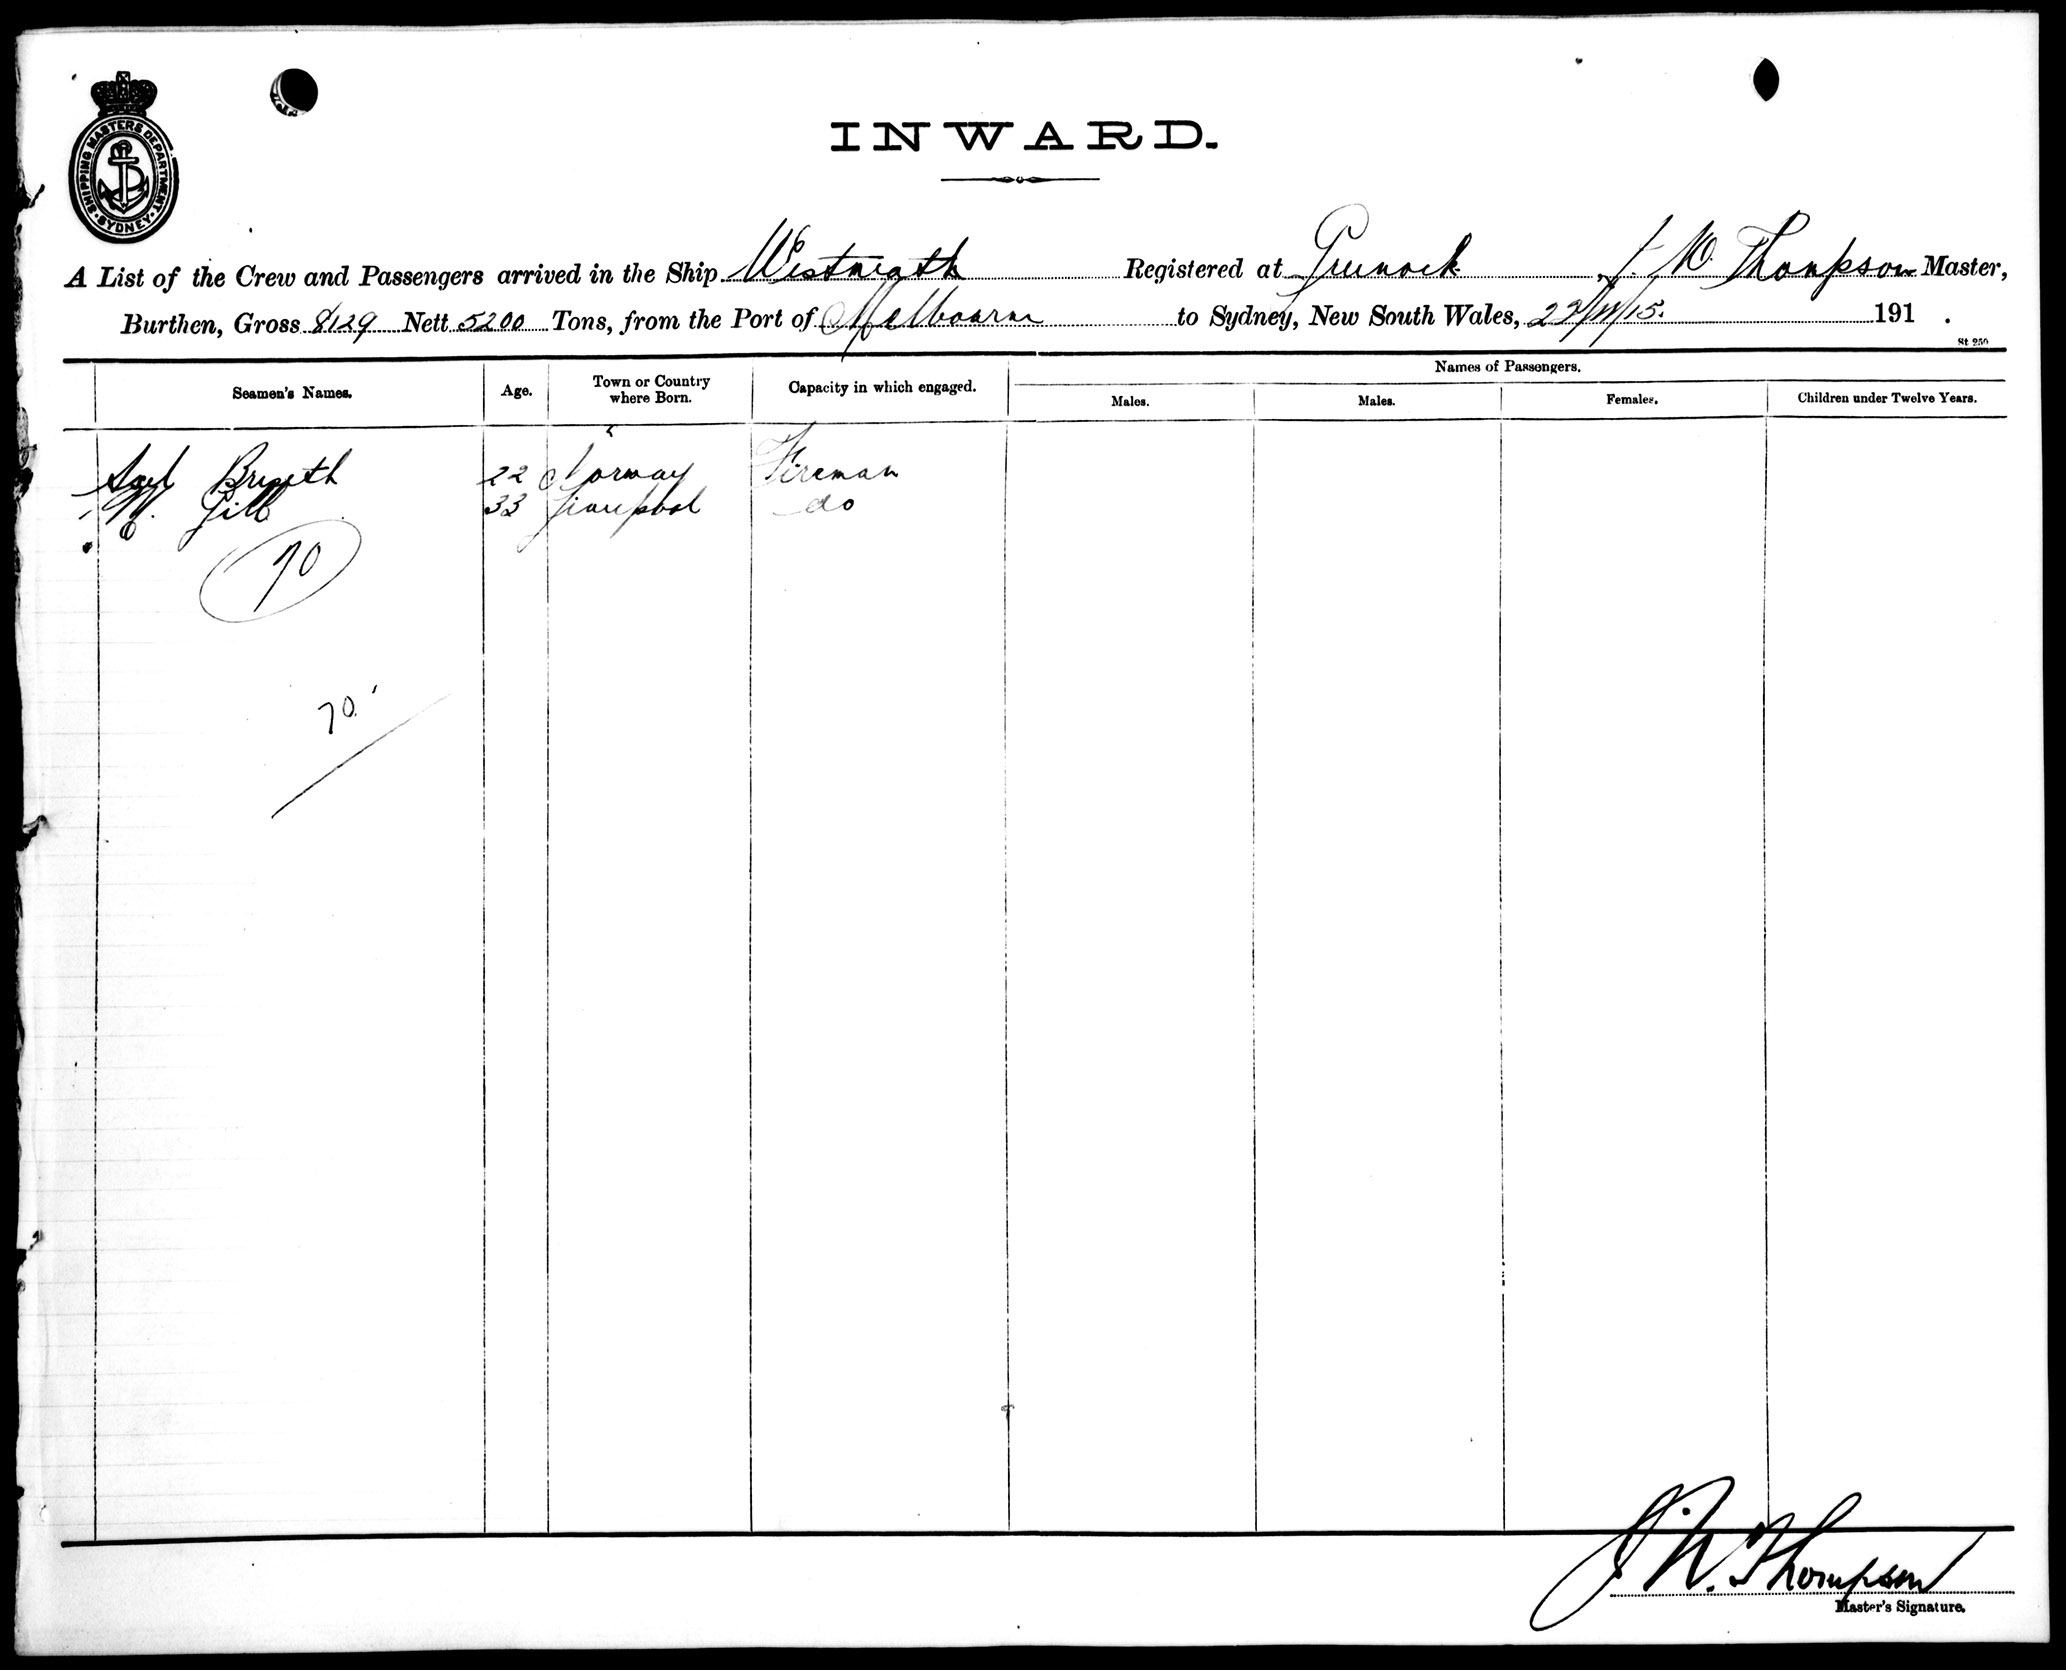 SHIPPING MASTERS DEPARTMENT. SYDNEY.
INWARD.
A List of the Crew and Passengers arrived in the Ship Westmeath Registered at Greenock J. W. Thompson Master,
Burthen, Gross 8129 Nett 5200 Tons, from the Port of Melbourne to Sydney, New South Wales, 22/11/15. 191 .
St 250
Seamen's Names. Age. Town or Country where Born. Capacity in which engaged. Names of Passengers.
Males. Males. Females. Children under Twelve Years.
Axel 22 Norway Fireman
Gill 33 Liverpool do
70
70
J. W. Thompson
Master's Signature.